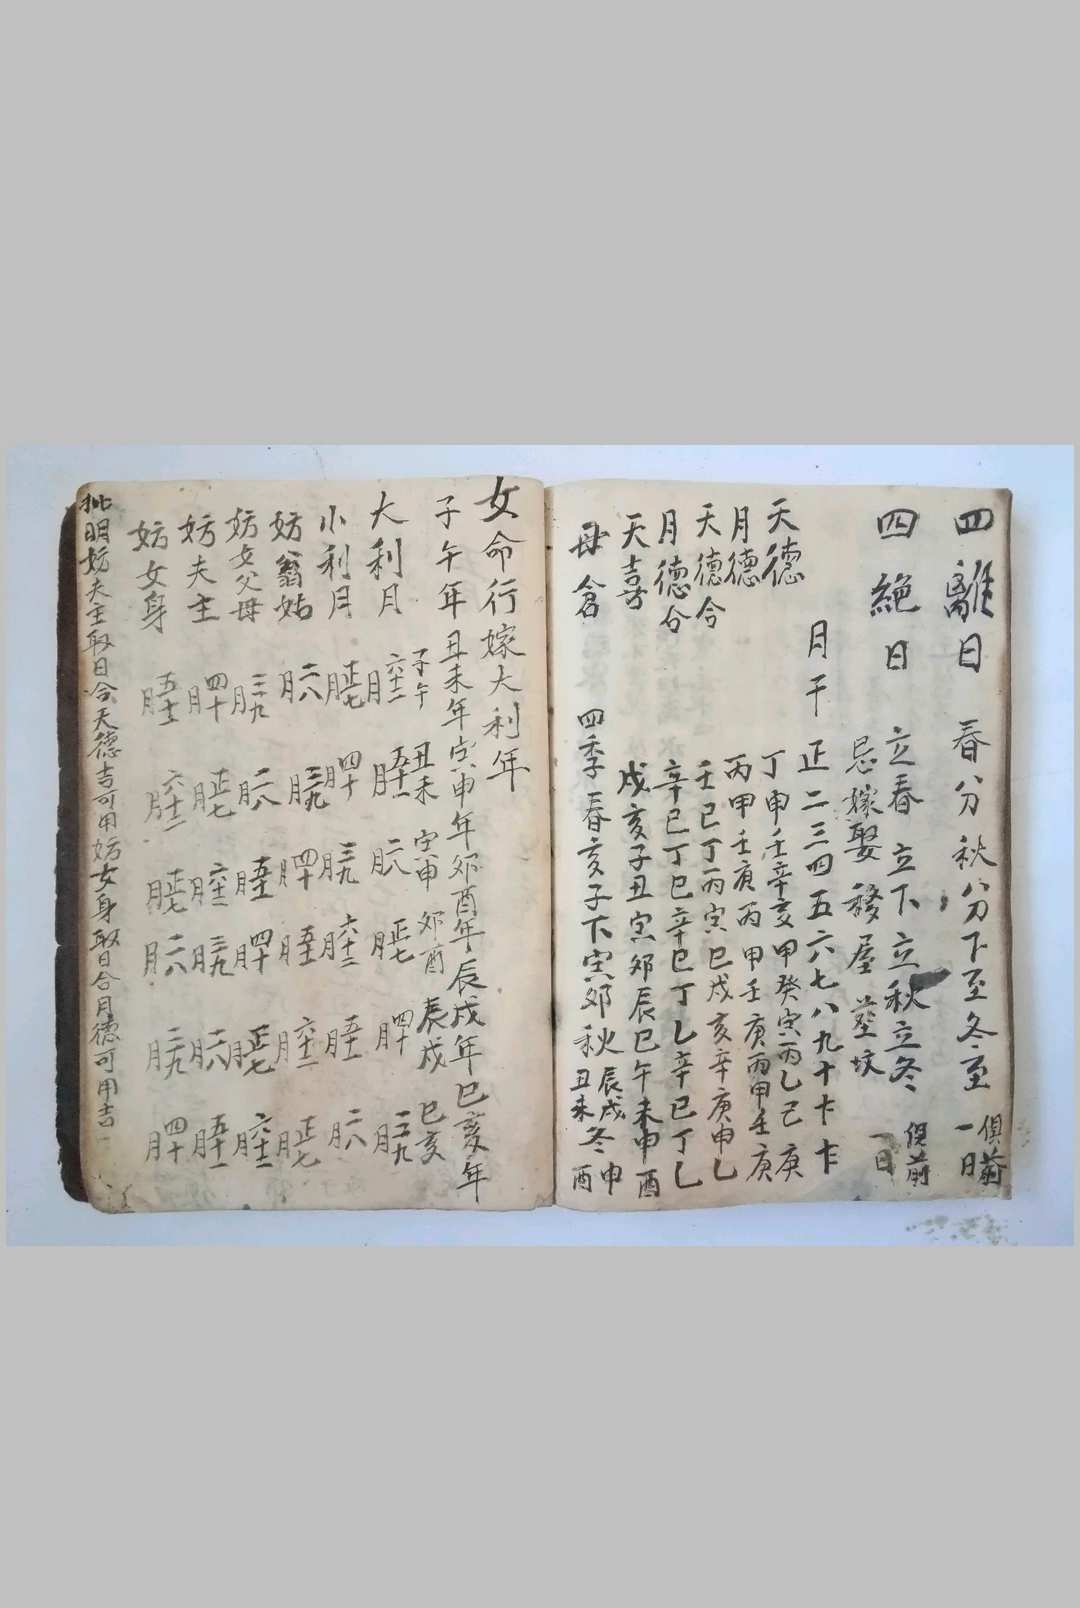 四離日 春分秋分下至冬至 俱前一日
四絕日 立春立下立秋立冬 俱前一日
忌嫁娶移屋葬坟
月干 正二三四五六七八九十
天德 丁申壬辛亥甲癸寅丙乙己庚
月德 丙甲壬庚丙甲壬庚丙甲壬庚
天德合 壬巳丁丙寅巳戌亥辛庚申乙
月德合 辛巳丁巳辛巳丁乙辛巳丁乙
天喜方 戌亥子丑寅卯辰巳午未申酉
母倉 四季春亥子下寅卯秋辰戌丑未冬申酉
女命行嫁大利年
子午年丑未年寅申年卯酉年辰戌年巳亥年
子午 丑未 寅申 卯酉 辰戌 巳亥
大利月 六十二月 五十一月 二八月 正七月 四十月 三九月
小利月 正七月 四十月 三九月 六十二月 五十一月 二八月
妨翁姑 二八月 三九月 四十月 五十一月 六十二月 正七月
妨女父母 三九月 二八月 五十一月 四十月 正七月 六十二月
妨夫主 四十月 正七月 六十二月 三九月 二八月 五十一月
妨女身 五十一月 六十二月 正七月 二八月 三九月 四十月
批明妨夫主取日合天德吉可用妨女身取日合月德可用吉